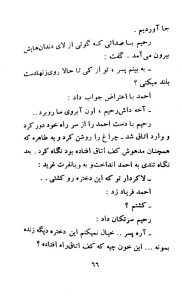 جا آوردیم .
رحیم با صدائی که گوئی از لای دندان‌هایش
بیرون می‌آمد . گفت :
ـ به بینم پسر ، تو از کی تا حالا روی زنها دست
بلند میکنی ؟
احمد با اعتراض جواب داد :
ـ آخه داش‌رحیم ، اون آبروی ما رو برد ..
رحیم با دست احمد را از سر راه خود دور کرد
و وارد اتاق شد ـ چراغ را روشن کرد و به طاهره که
همچنان مدهوش کف اتاق افتاده بود نگاه کرد. بعد
نگاه تندی به احمد انداخت و به باغرت غرید :
ـ لاکردار تو که این دختره رو کشتی..
احمد فریاد زد :
ـ کشتم ؟
رحیم سرتکان داد:
ـ آره پسر .. خیال نمیکنم این دختره دیگه زنده
بمونه ... این خون چیه که کف اتاق‌راه افتاده ؟
۶۶